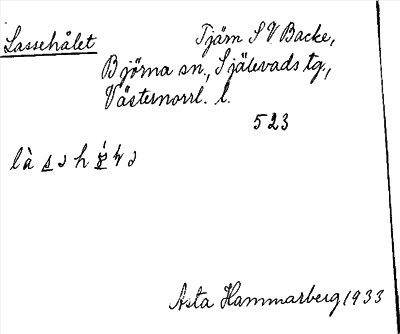 Lassehålet
Tjärn S V Backe,
Björna sn., Själevads tg.,
Västernorrl. l.
523
Asta Hammarberg 1933